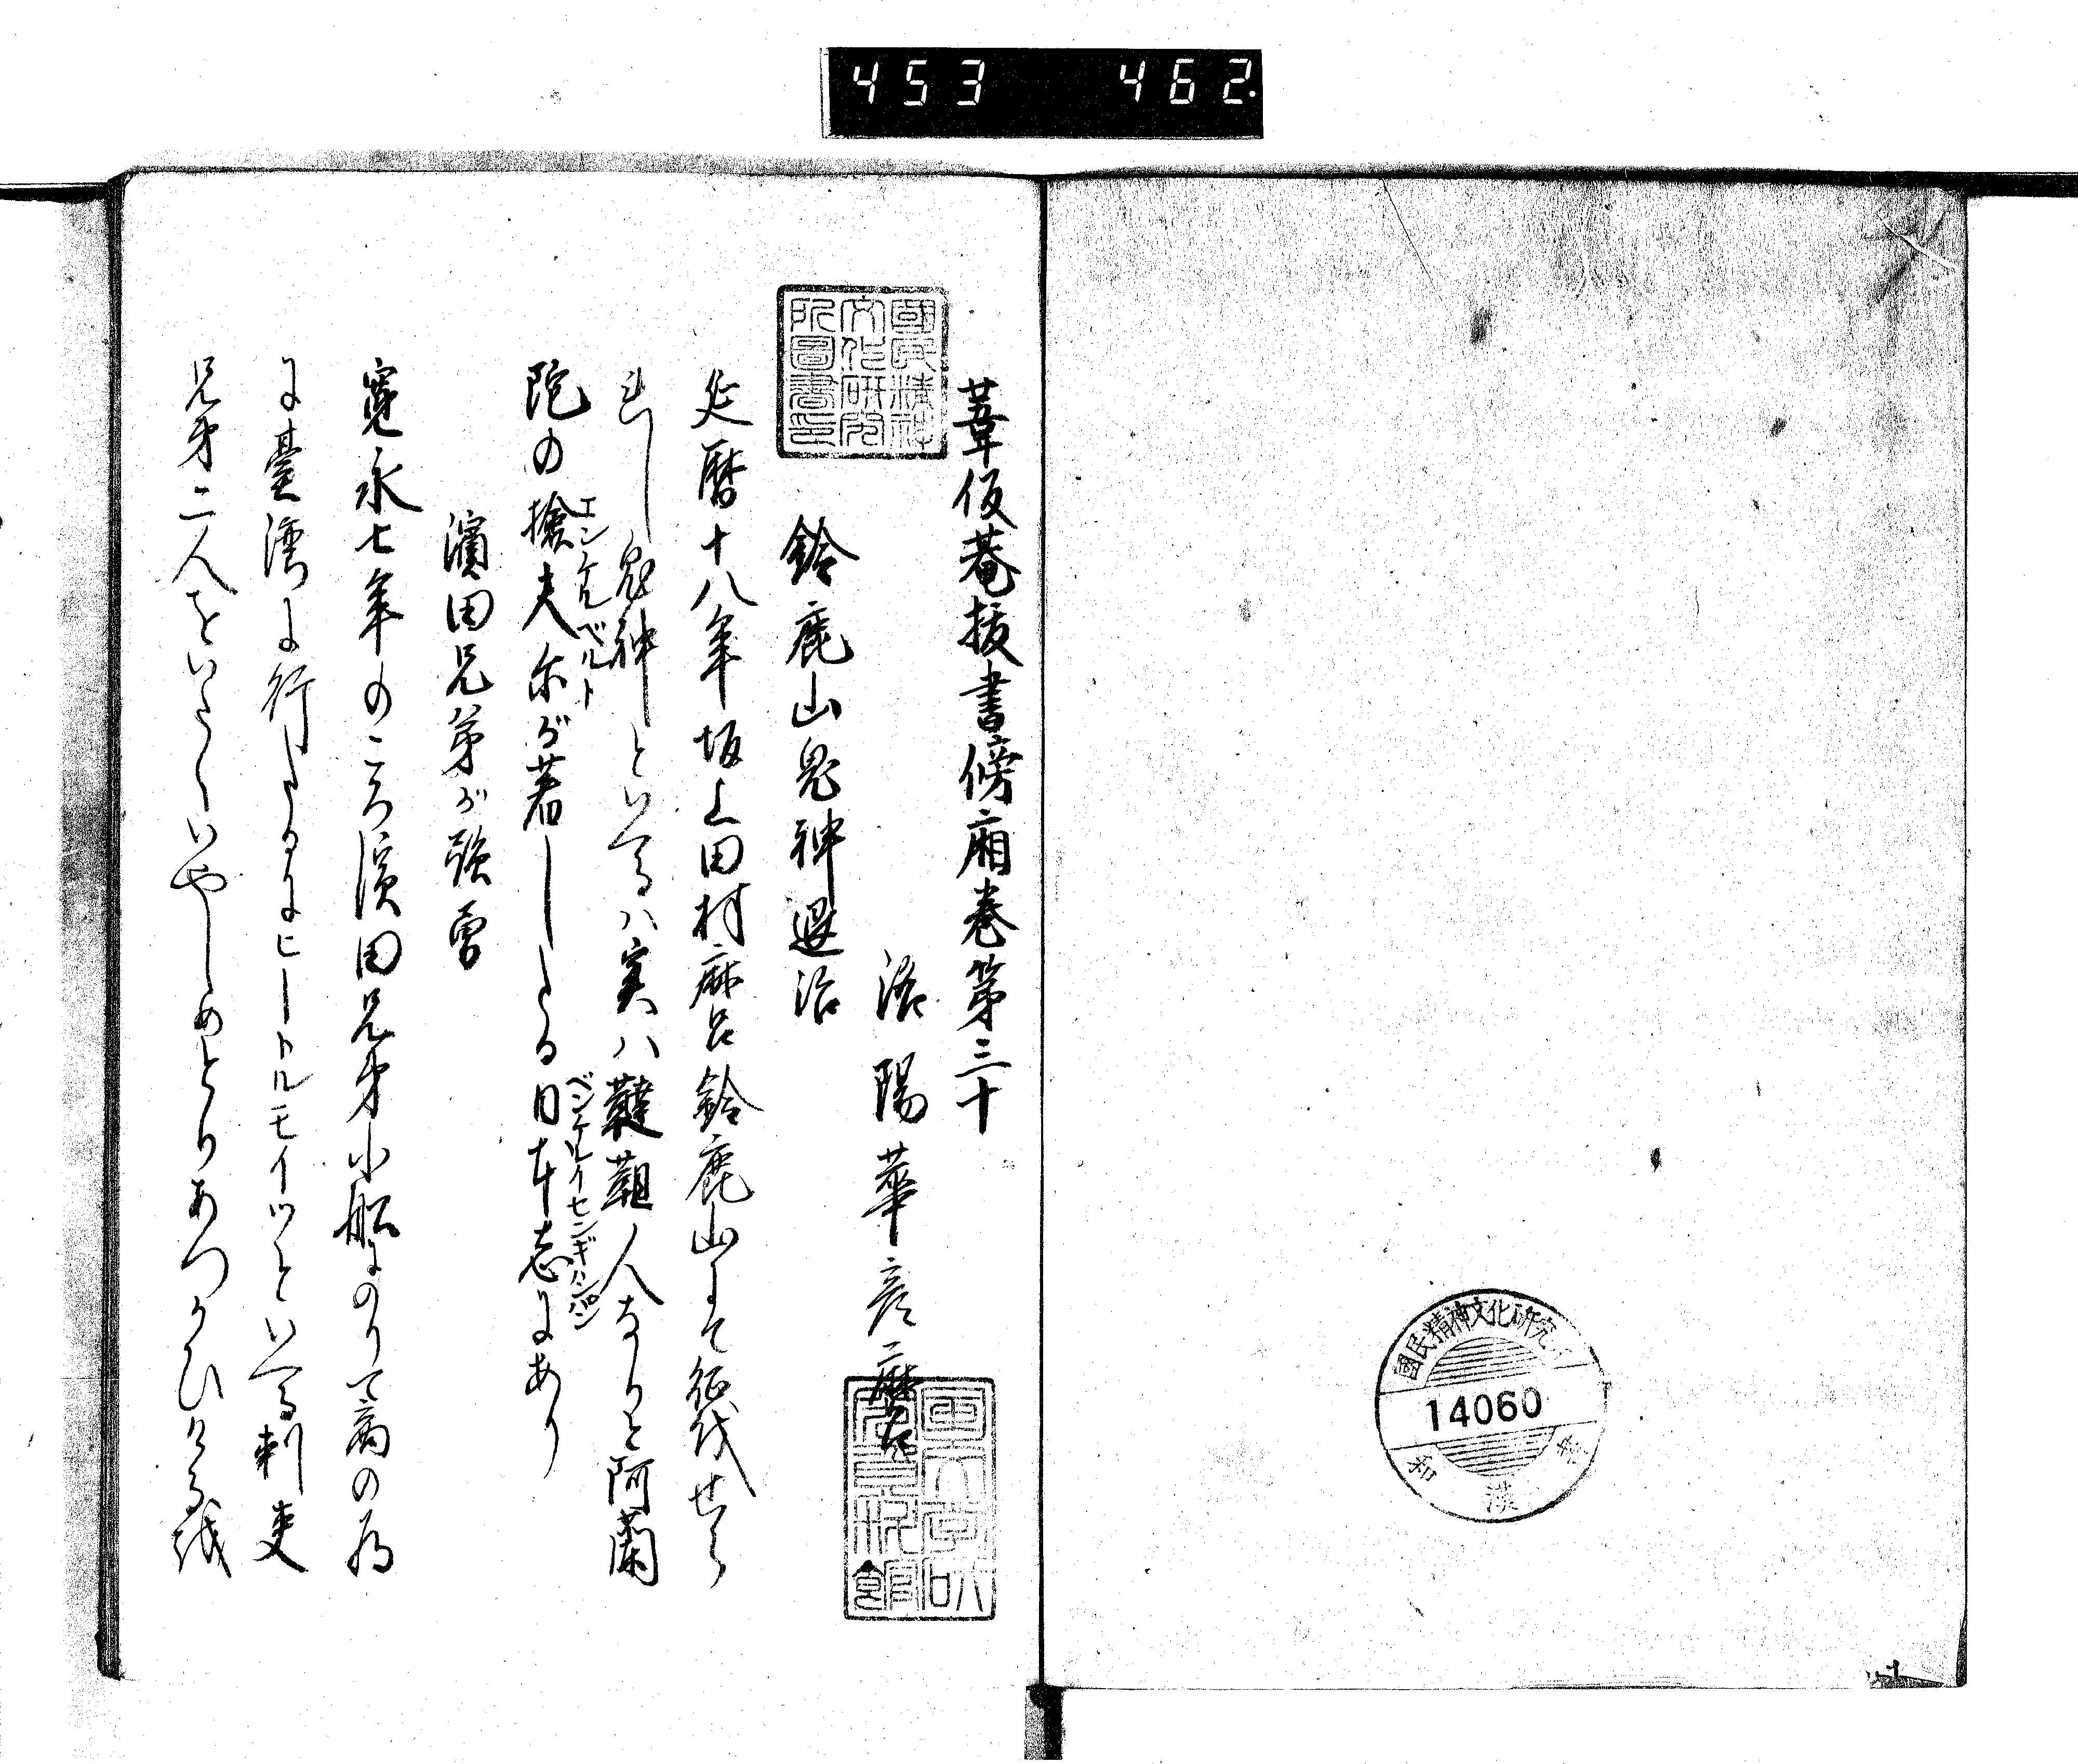 453 462.
國民精神文化研究所圖書印
葦仮菴抜書傍廂巻第三十
洛陽 華彦麻呂
鈴鹿山鬼神退治
延暦十八年坂上田村麻呂鈴鹿山にて征伐せら
れし鬼神といへるハ実ハ韃靼人なりと阿蘭
陀の搶夫尓が著したる日本志にあり
エンケルベルト
ベシケレイセンギハンヤパン
濱田兄弟が強勇
寛永七年のころ濱田兄弟小舩にのりて商の為
に臺湾に行たるにヒートルモイツといへる刺吏
兄弟二人をいたくいやしめとりあつかひける故
國民精神文化研究
14060
和漢書